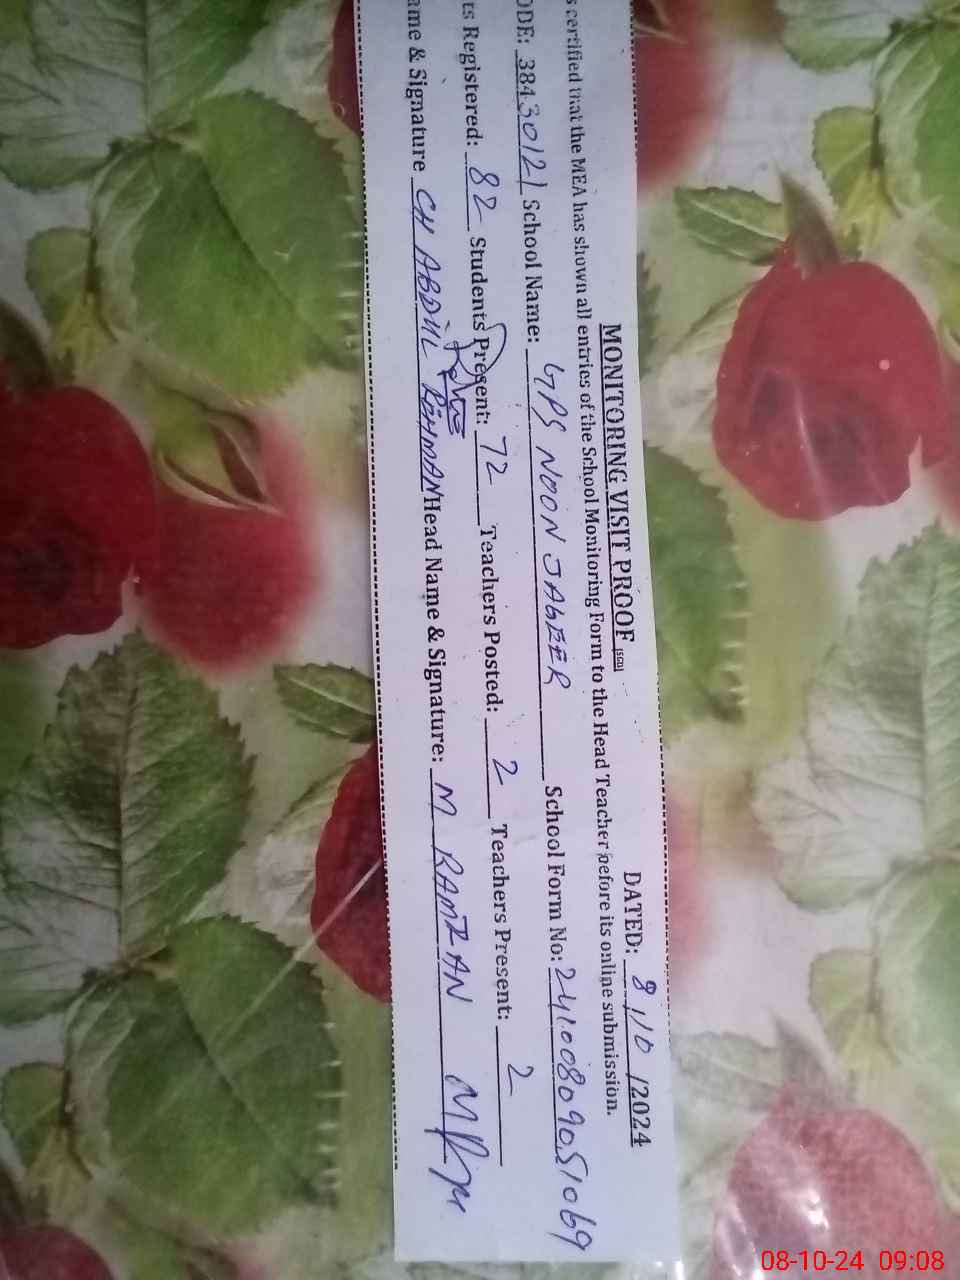 MONITORING VISIT PROOF [SGD] DATED: 8/10/2024
s certified that the MEA has shown all entries of the School Monitoring Form to the Head Teacher before its online submission.
ODE: 38430121 School Name: GPS NOON JAGEER School Form No: 24100809051069
ts Registered: 82 Students Present: 72 Teachers Posted: 2 Teachers Present: 2
ame & Signature CH ABDUL REHMAN Head Name & Signature: M RAMZAN
08-10-24 09:08